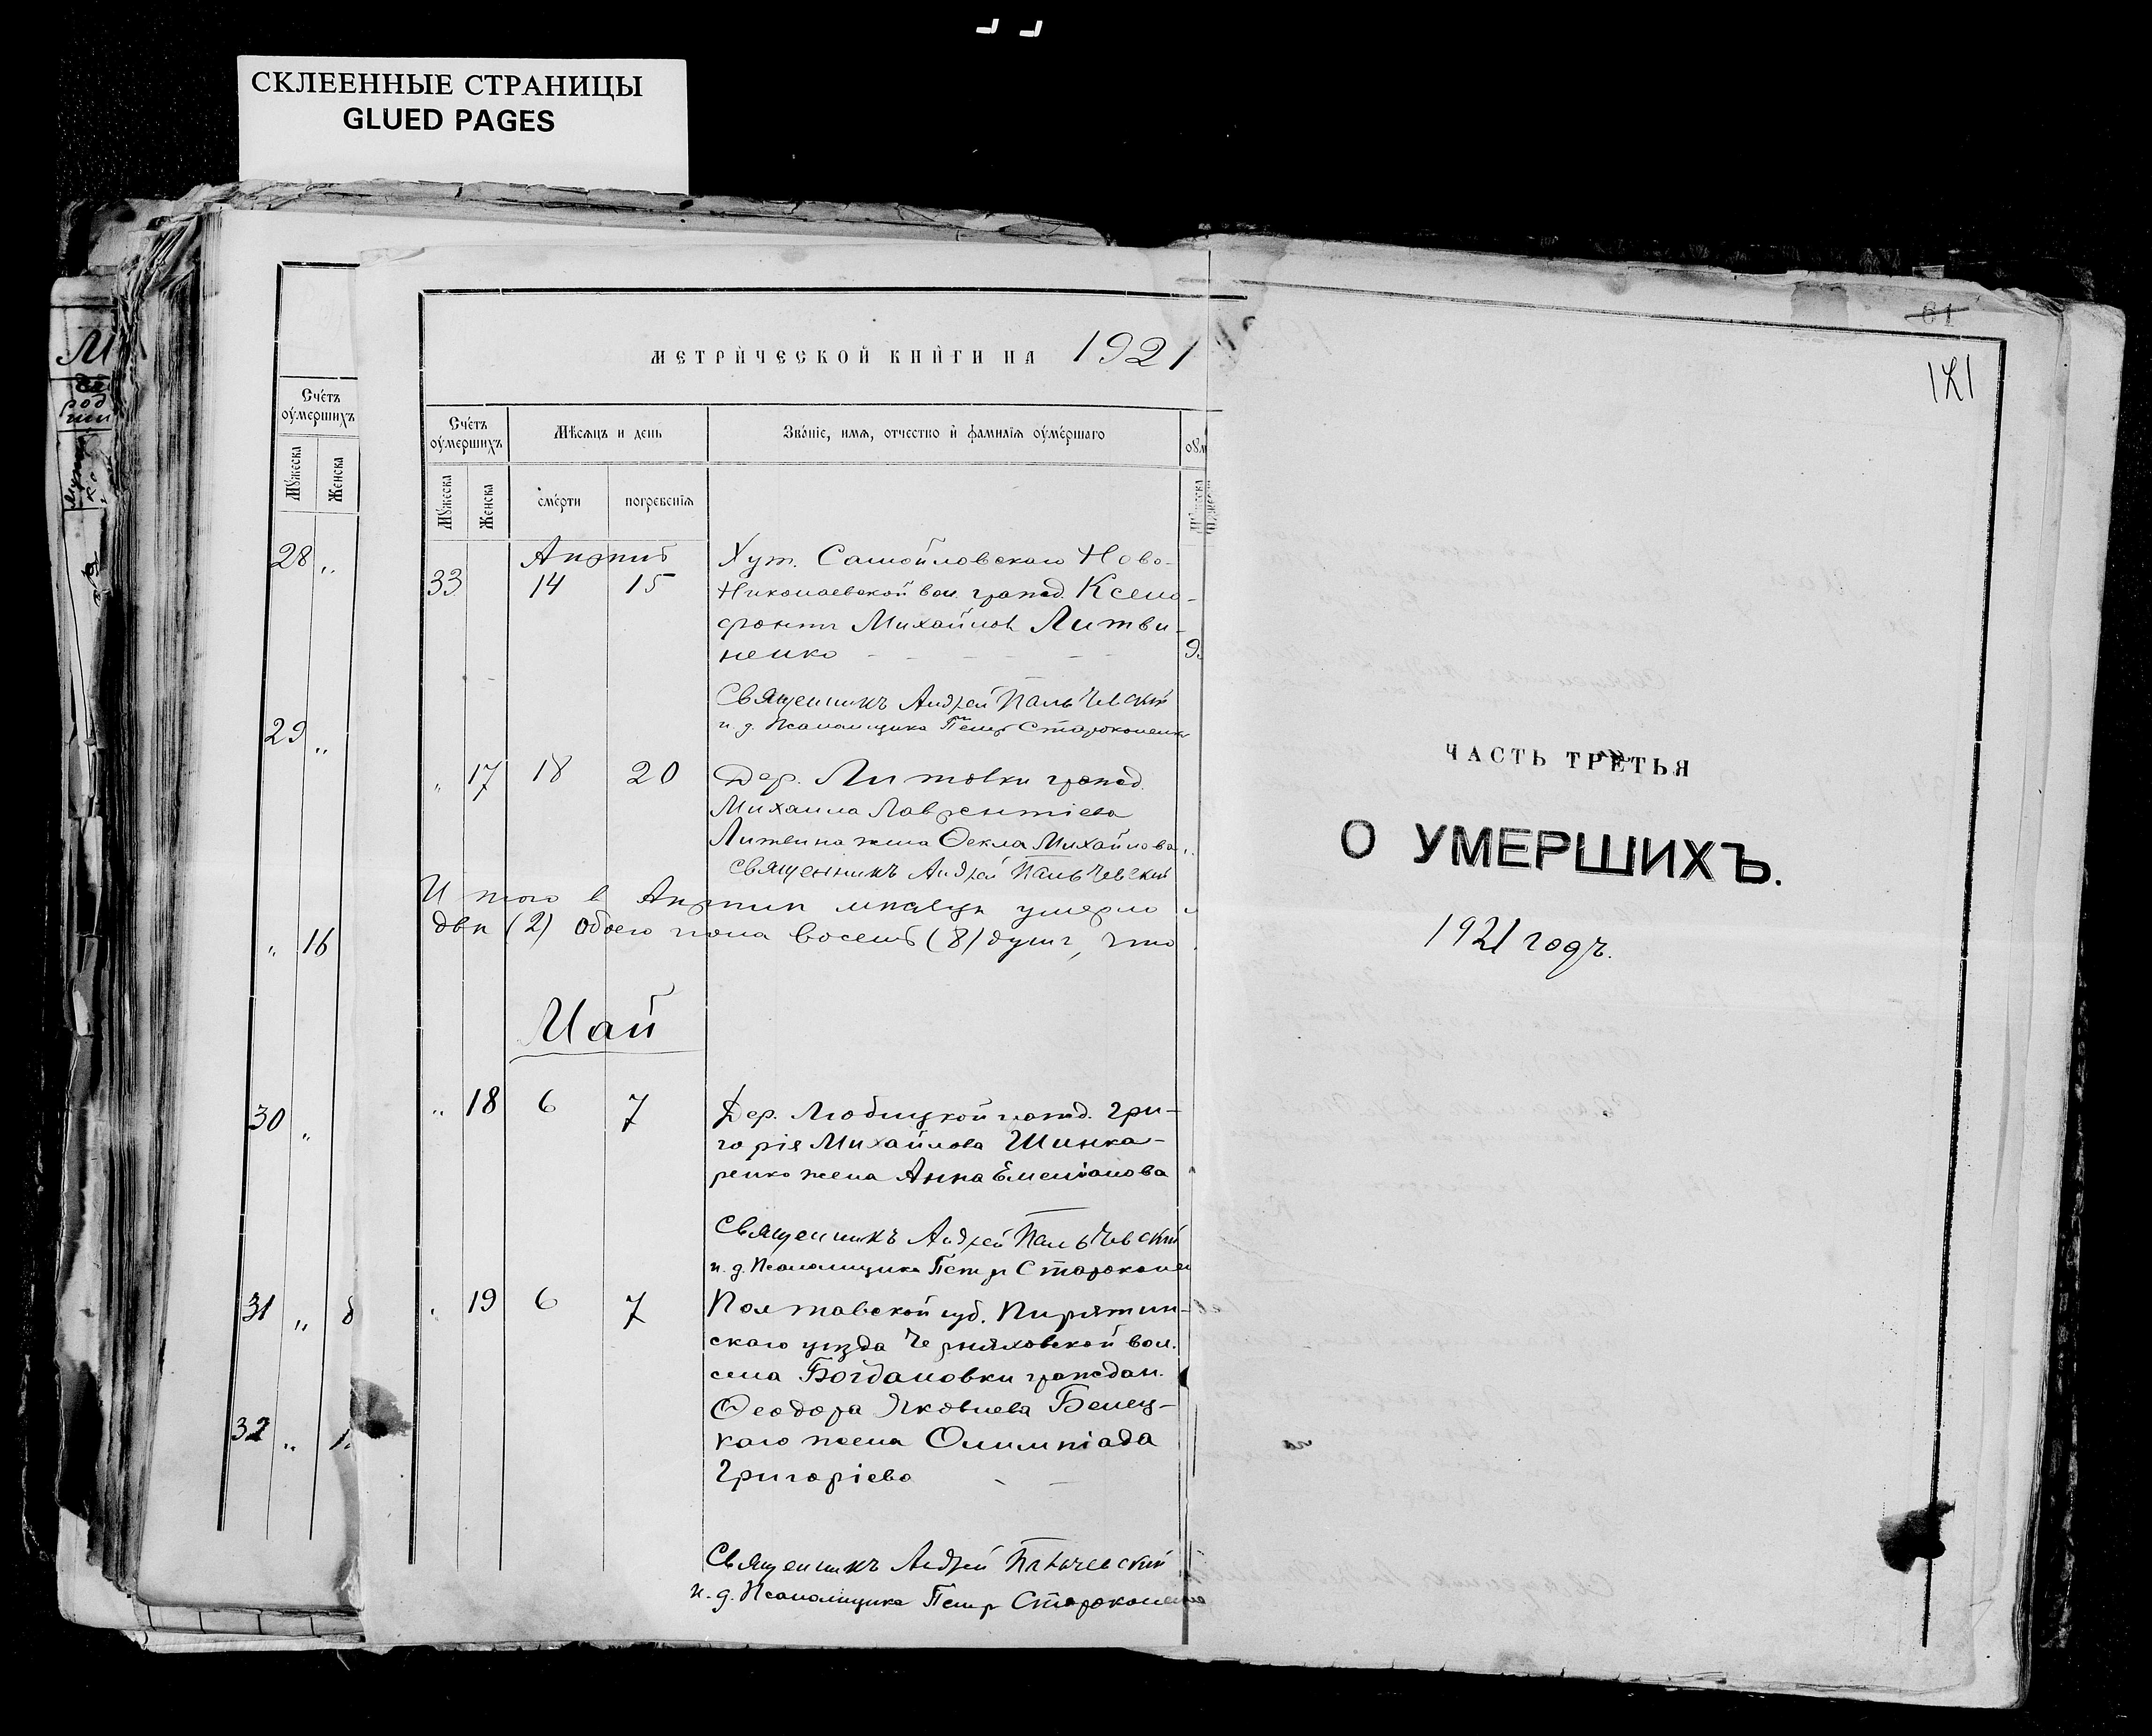 СКЛЕЕННЫЕ СТРАНИЦЫ
GLUED PAGES
Счётъ
оумершихъ
Мужеска
Женска
28 "
29 "
" 16
30 "
31 "
32 "
МЕТРИЧЕСКОЙ КНИГИ НА 1921
Счётъ
оумершихъ
Мѣсяцъ и день
Званіе, имя, отчество и фамилія оумершаго
Мужеска
Женска
смерти
погребенія
Апрѣль
33 14 15
Хут. Самойловскаго Ново-
Николаевской вол. гражд. Ксено-
фонтъ Михайловъ Литви-
ненко
Священникъ Андрей Пальчевский
и. д. Псаломщика Петръ Староконенко
" 17 18 20
Дер. Литовки гражд.
Михаила Лаврентіева
Литвина жена Ѳекла Михайлова
Священникъ Андрей Пальчевский
Итого в Апрѣлѣ мѣсяцѣ умерло
двѣ (2) обоего пола восемь (8) душъ, что
Май
" 18 6 7
Дер. Любицкой гражд. Гри-
горія Михайлова Шинка-
ренко жена Анна Емеліанова
Священникъ Андрей Пальчевский
и. д. Псаломщика Петръ Староконен
" 19 6 7
Полтавской губ. Пирятин-
скаго уѣзда Черняховской вол.
села Богдановки граждан.
Ѳеодора Яковлева Белец-
каго жена Олимпіада
Григоріева
Священникъ Андрей Пальчевский
и. д. Псаломщика Петръ Староконенко
61
121
ЧАСТЬ ТРЕТЬЯ
О УМЕРШИХЪ.
1921 годъ.